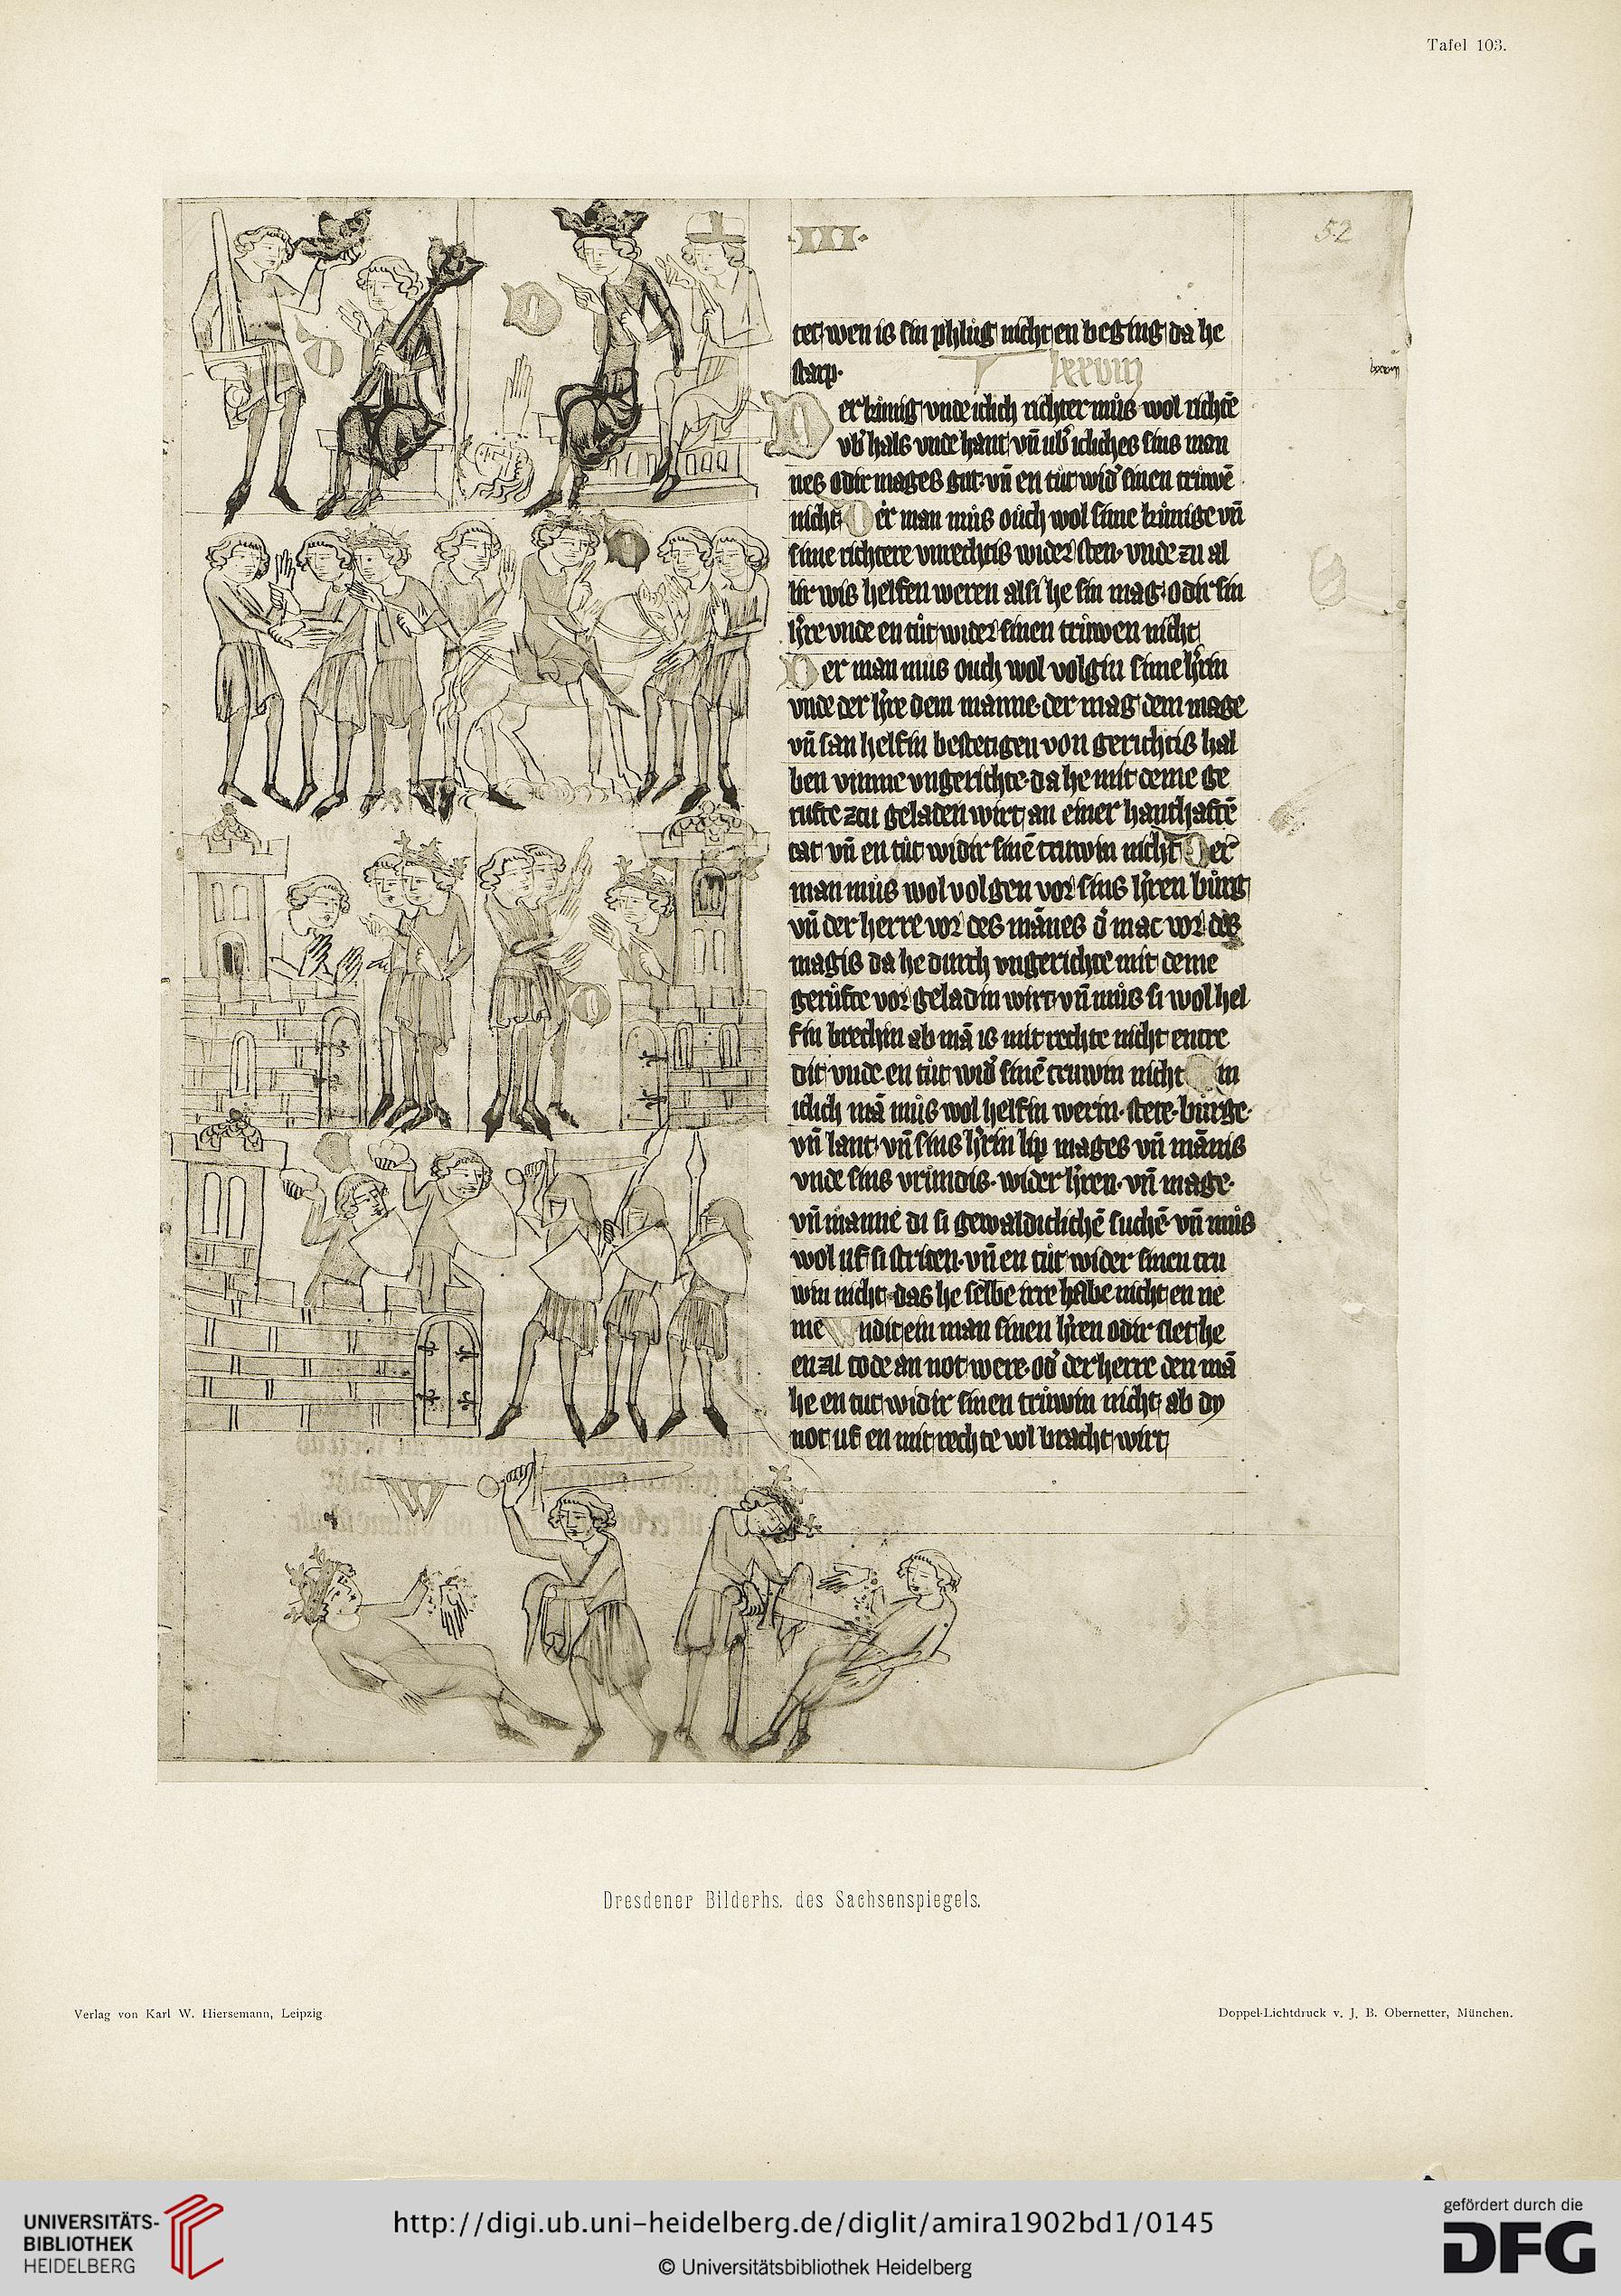 Tafel 103.
·III·
52
ter wen is sin phlůg nicht en beging da he
starp·
lxxviii
Der kůnig vnde iclich richter můs wol richtē
vb' hals vnde hant vn̄ ub' icliches sins man
nes odir mages gut· vn̄ en tůt wid' sinen trůwē
nicht Der man můs oůch wol sime kůnige vn̄
sime richtere vnrechtis wider sten· vnde zu al
lir wis helfen weren alsi he sin mag· odir sin
h're vnde en tůt wider sinen trůwen nicht
Der man mus ouch wol volgin sime h'rin
vnde der h're dem manne· der mag dem mage
vn̄ san helfin bestetigen von gerichtis hal
ben vmme vngerichte· da he mit deme ge
rufte zcu geladen wirt an einer hanthaftē
tat vn̄ en tůt widir sinē truwin nicht Der
man můs wol volgen vor sins h'ren bůrg
vn̄ der herre vor des mānes d' mac vor des
magis da he durch vngerichte mit deme
gerůfte vor geladin wirt vn̄ můs si wol hel
fin brechin ab mā is mit rechte nicht entre
dit vnde en tůt wid' sinē truwin nicht Ein
iclich mā můs wol helfin werin· stete· burge·
vn̄ lant· vn̄ sins h'rin lip mages vn̄ mānis
vnde sins vrůndis· wider h'ren· vn̄ mage·
vn̄ manne di si gewaldiclichē suchē· vn̄ můs
wol uf si striten· vn̄ en tůt wider sinen tru
win nicht· das he selbe irre habe nicht en ne
me Wndit ein man sinen h'ren odir slet he
en zu tode an not were· od' der herre den mā
he en tut widir sinen trůwin nicht· ab dy
not uf en mit rechte vol bracht wirt
W
Dresdener Bilderhs. des Sachsenspiegels.
Verlag von Karl W. Hiersemann, Leipzig.
Doppel-Lichtdruck v. J. B. Obernetter, München.
UNIVERSITÄTS-
BIBLIOTHEK
HEIDELBERG
http://digi.ub.uni-heidelberg.de/diglit/amira1902bd1/0145
© Universitätsbibliothek Heidelberg
gefördert durch die
DFG